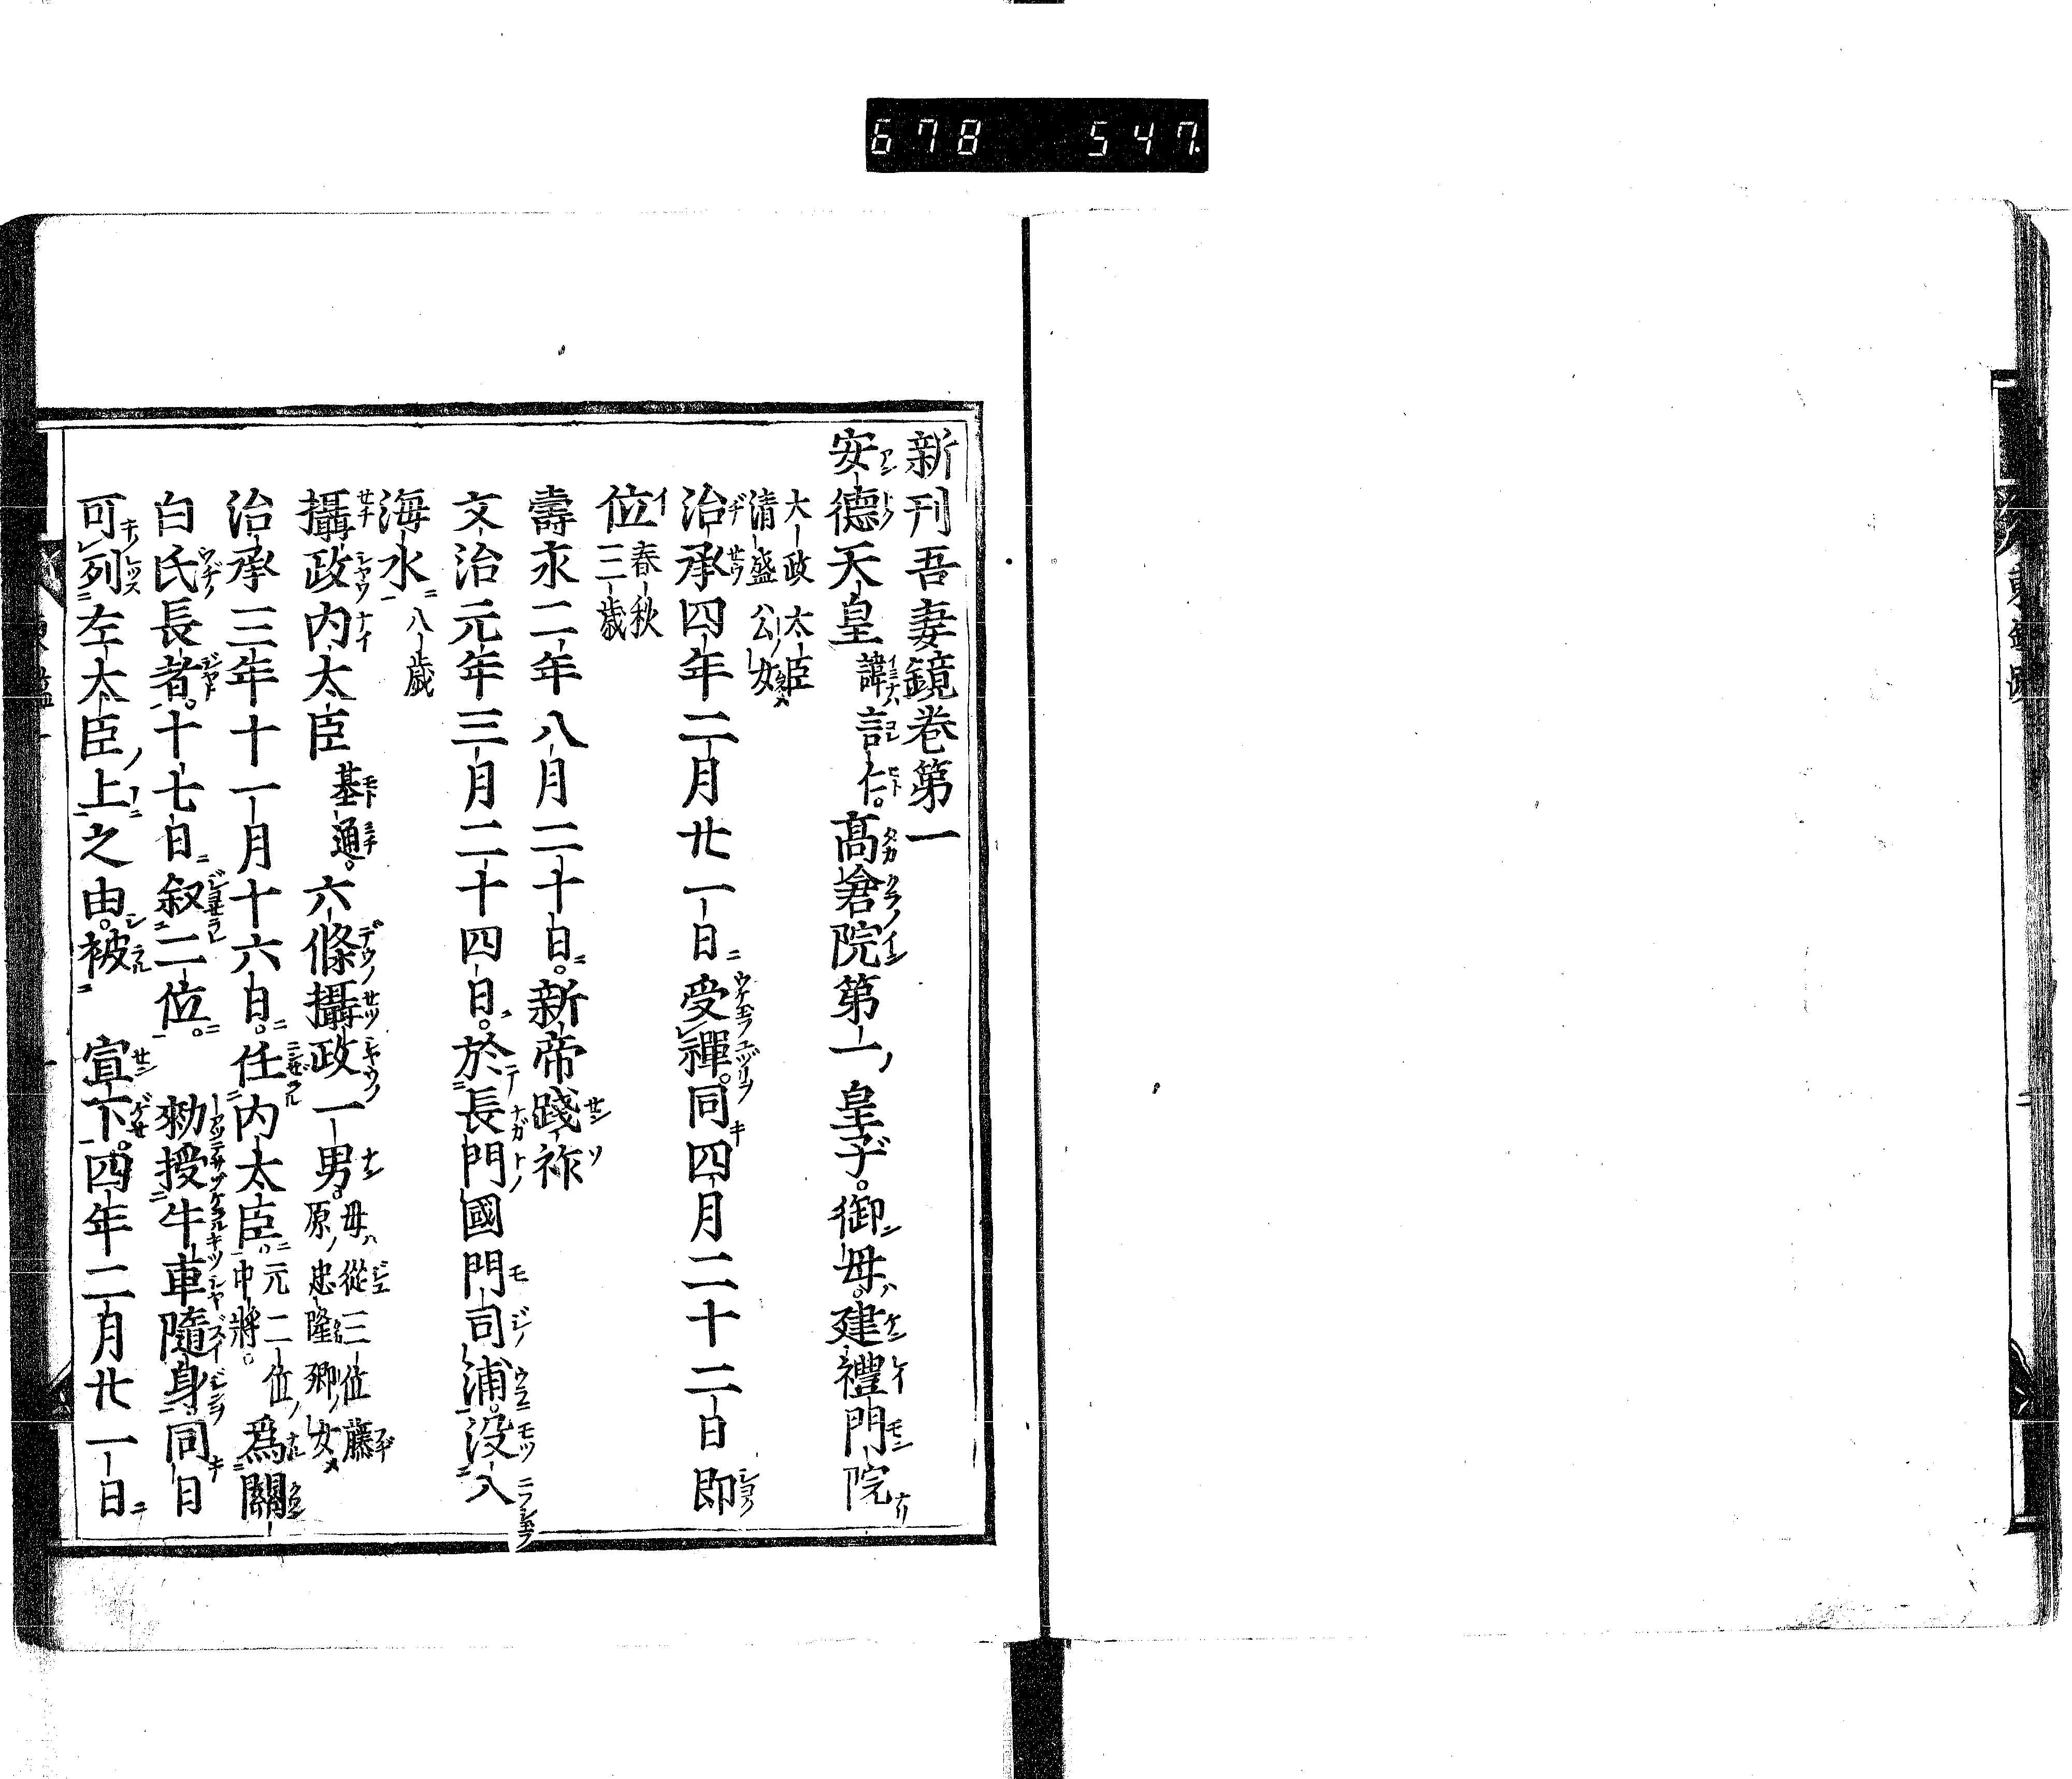 678 547
新刊吾妻鏡卷第一
安德天皇 諱言仁。高倉院第一皇子。御母。建禮門院
大政太臣
清盛公女
治承四年二月廿一日受禪。同四月二十二日即
位 春秋
三歳
壽永二年八月二十日。新帝踐祚
文治元年三月二十四日。於長門國門司浦。没入
海水 八歳
攝政内太臣 基通。六條攝政一男。母從三位藤
原忠隆卿女
治承三年十一月十六日。任内太臣。元二位
中將。爲關
白氏長者。十七日叙二位。 勅授牛車隨身同日
可列左大臣上之由。被 宣下。四年二月廿一日